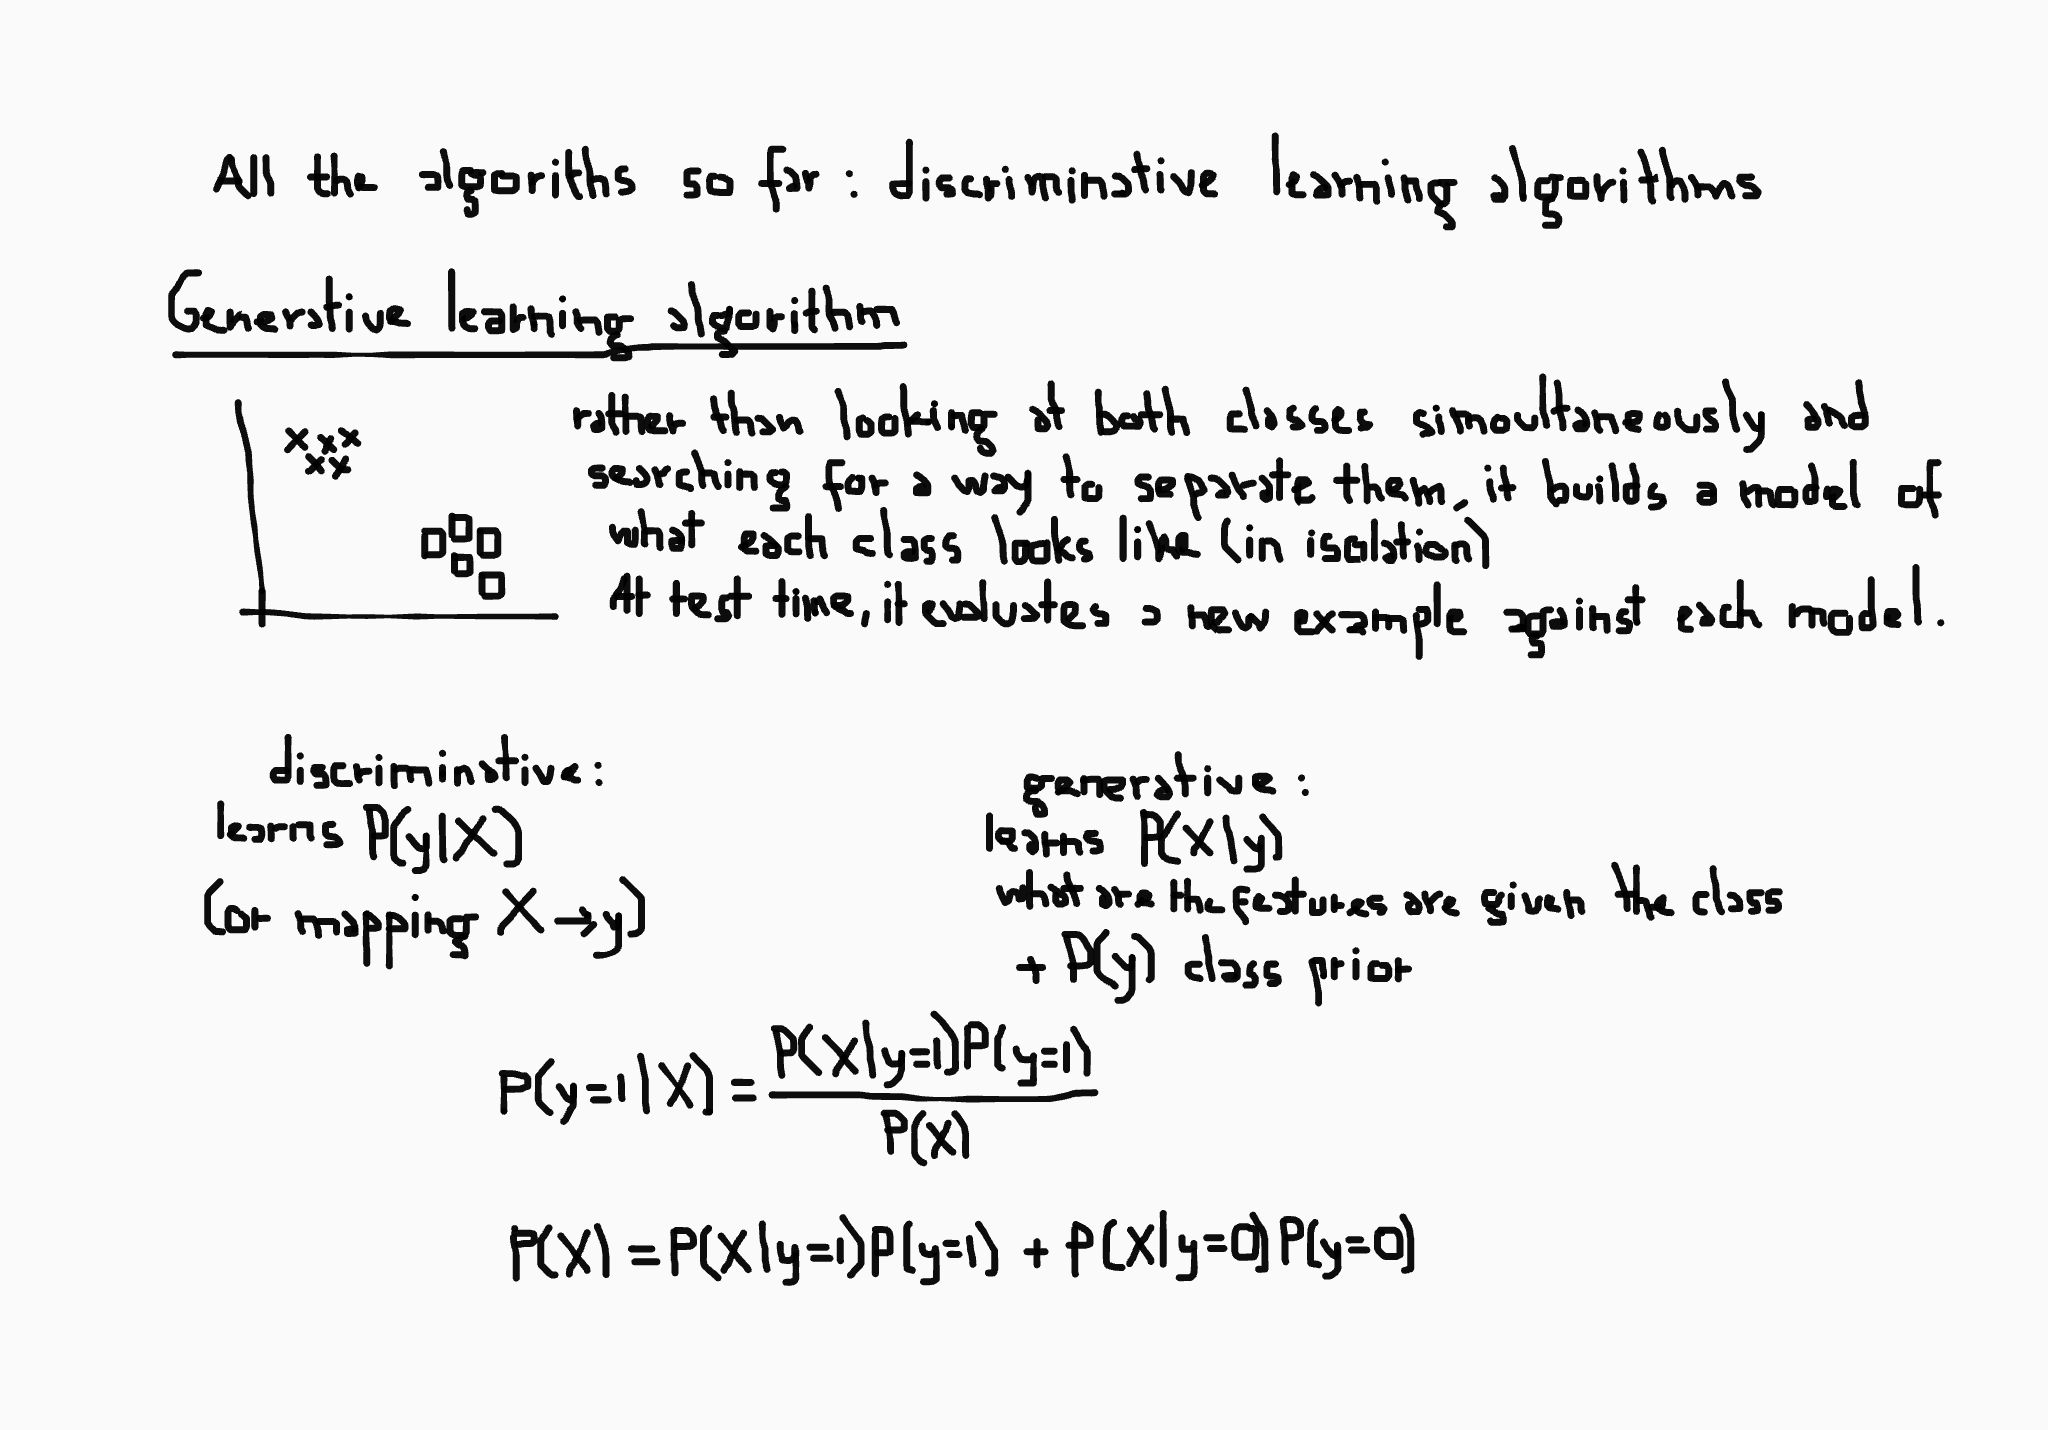 All the algoriths so far : discriminative learning algorithms
Generative learning algorithm
rather than looking at both classes simoultaneously and
searching for a way to separate them, it builds a model of
what each class looks like (in isolation)
At test time, it evaluates a new example against each model.
discriminative:
learns P(y|X)
(or mapping X→y)
generative :
learns P(X|y)
what are the features are given the class
+ P(y) class prior
P(y=1|X) = P(X|y=1)P(y=1)
P(X)
P(X) = P(X|y=1)P(y=1) + P(X|y=0)P(y=0)